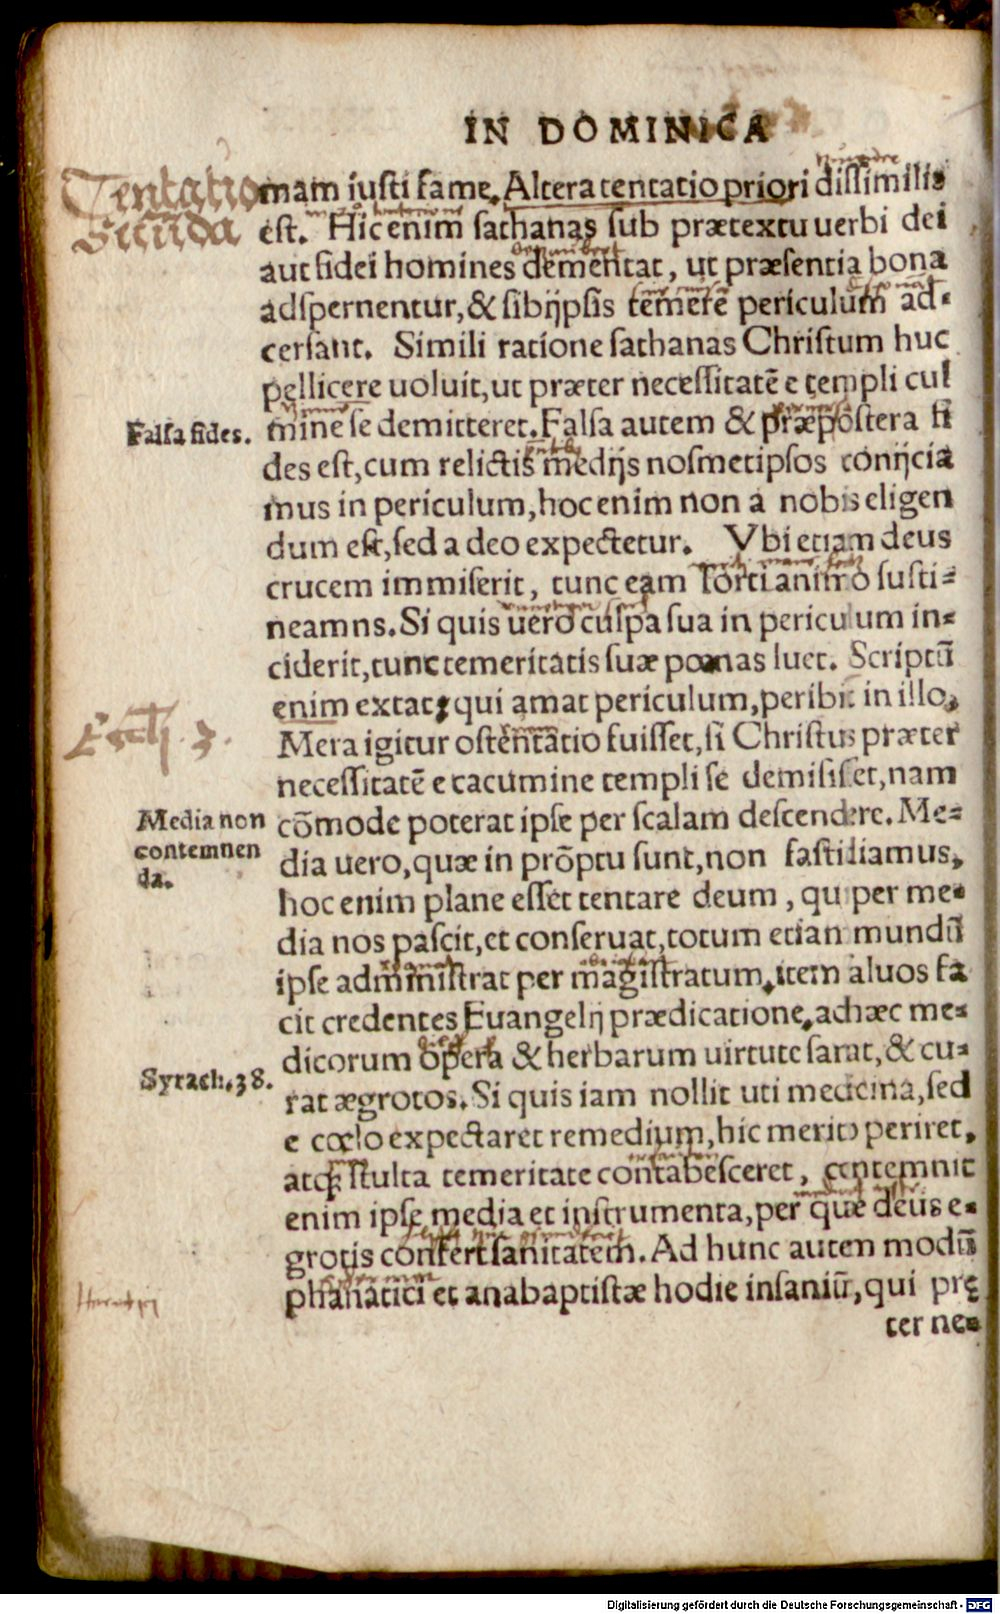 IN DOMINICA
Tentatio
Secūda
mam iusti fame. Altera tentatio priori dissimilis
est. Hic enim sathanas sub prætextu uerbi dei
aut fidei homines dementat, ut præsentia bona
adspernentur, & sibijpsis temere periculum ad-
cersant. Simili ratione sathanas Christum huc
pellicere uoluit, ut præter necessitatē e templi cul
Falsa fides.
mine se demitteret. Falsa autem & præpostera fi
des est, cum relictis medijs nosmetipsos conijcia
mus in periculum, hoc enim non a nobis eligen
dum est, sed a deo expectetur. Vbi etiam deus
crucem immiserit, tunc eam forti animo susti-
neamns. Si quis uero culpa sua in periculum in-
ciderit, tunc temeritatis suæ pœnas luet. Scriptū
enim extat; qui amat periculum, peribit in illo.
Eccli. 3.
Mera igitur ostentatio fuisset, si Christus præter
necessitatē e cacumine templi se demisisset, nam
Media non
contemnen
da.
cōmode poterat ipse per scalam descendere. Me-
dia uero, quæ in prōptu sunt, non fastidiamus,
hoc enim plane esset tentare deum, qui per me-
dia nos pascit, et conseruat, totum etiam mundū
ipse administrat per magistratum, item saluos fa
cit credentes Euangelij prædicatione, ad hæc me-
Syrach. 38.
dicorum opera & herbarum uirtute sanat, & cu-
rat ægrotos. Si quis iam nollit uti medicina, sed
e cœlo expectaret remedium, hic merito periret,
atq; stulta temeritate contabesceret, contemnit
enim ipse media et instrumenta, per quæ deus e-
grotis confert sanitatem. Ad hunc autem modū
phanatici et anabaptistæ hodie insaniūt, qui prę
ter ne-
Digitalisierung gefördert durch die Deutsche Forschungsgemeinschaft - DFG